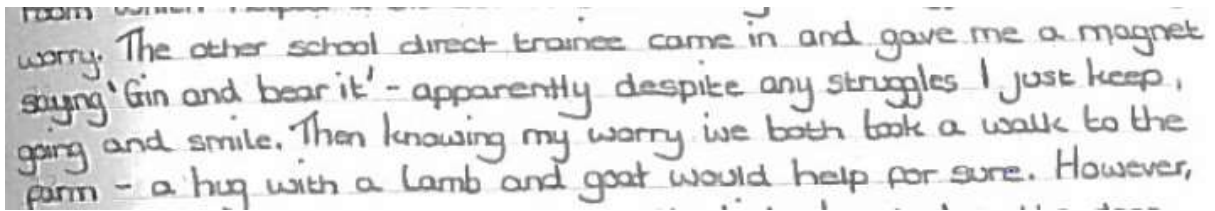 room which
worry. The other school direct trainee came in and gave me a magnet
saying 'Gin and bear it' - apparently despite any struggles I just keep,
going and smile. Then knowing my worry we both took a walk to the
farm - a hug with a lamb and goat would help for sure. However,